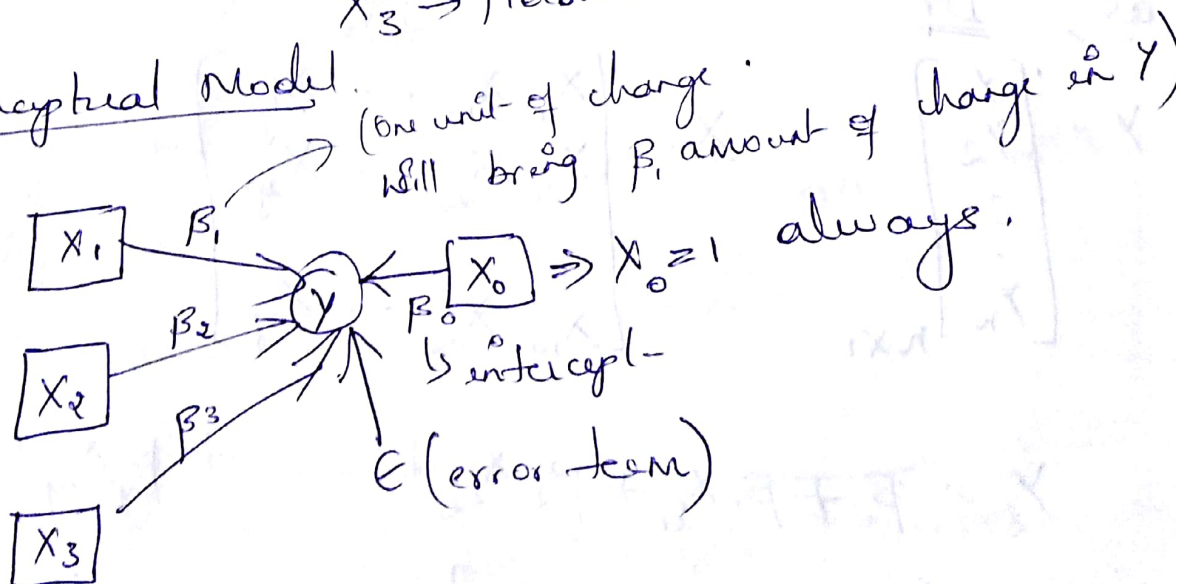 X3 →
ceptual Model.
(One unit of change
will bring β1 amount of change in Y)
X1 β1
Y
X0 ⇒ X0 = 1 always.
β0
↳ intercept
X2 β2
β3
ϵ (error term)
X3